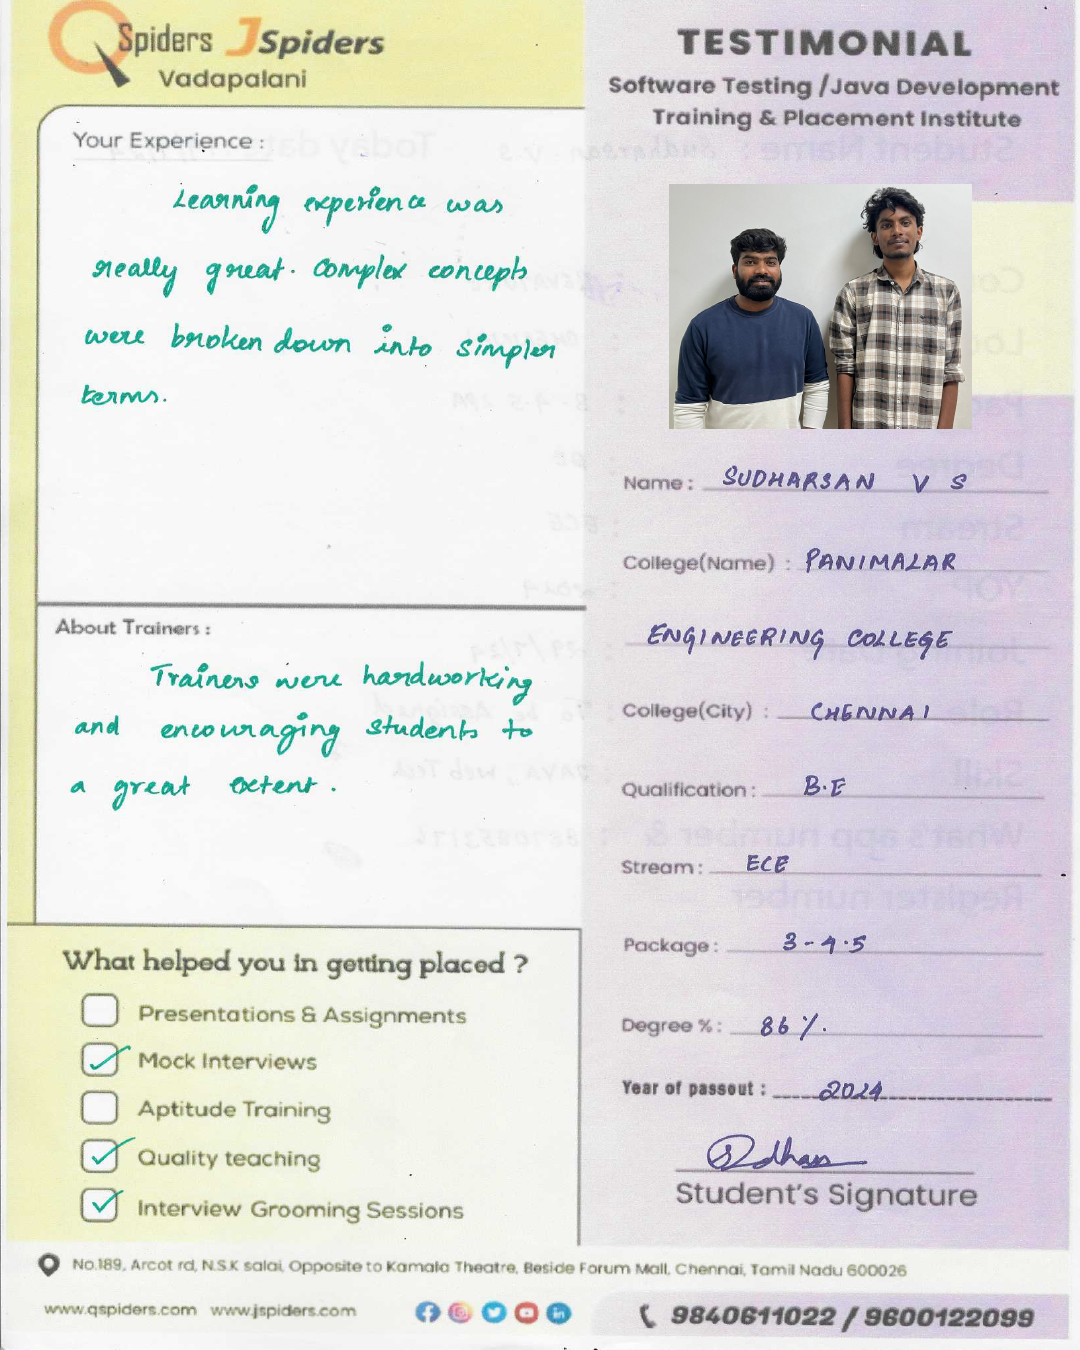 QSpiders JSpiders
Vadapalani
TESTIMONIAL
Software Testing /Java Development
Training & Placement Institute
Your Experience :
Learning experience was
really great. Complex concepts
were broken down into simpler
terms.
About Trainers :
Trainers were hardworking
and encouraging students to
a great extent.
What helped you in getting placed ?
Presentations & Assignments
Mock Interviews
Aptitude Training
Quality teaching
Interview Grooming Sessions
Name : SUDHARSAN V S
College(Name) : PANIMALAR
ENGINEERING COLLEGE
College(City) : CHENNAI
Qualification : B.E
Stream : ECE
Package : 3 - 4.5
Degree % : 86 %.
Year of passout : 2024
Student's Signature
No.189, Arcot rd, N.S.K salai, Opposite to Kamala Theatre, Beside Forum Mall, Chennai, Tamil Nadu 600026
www.qspiders.com www.jspiders.com
9840611022 / 9600122099